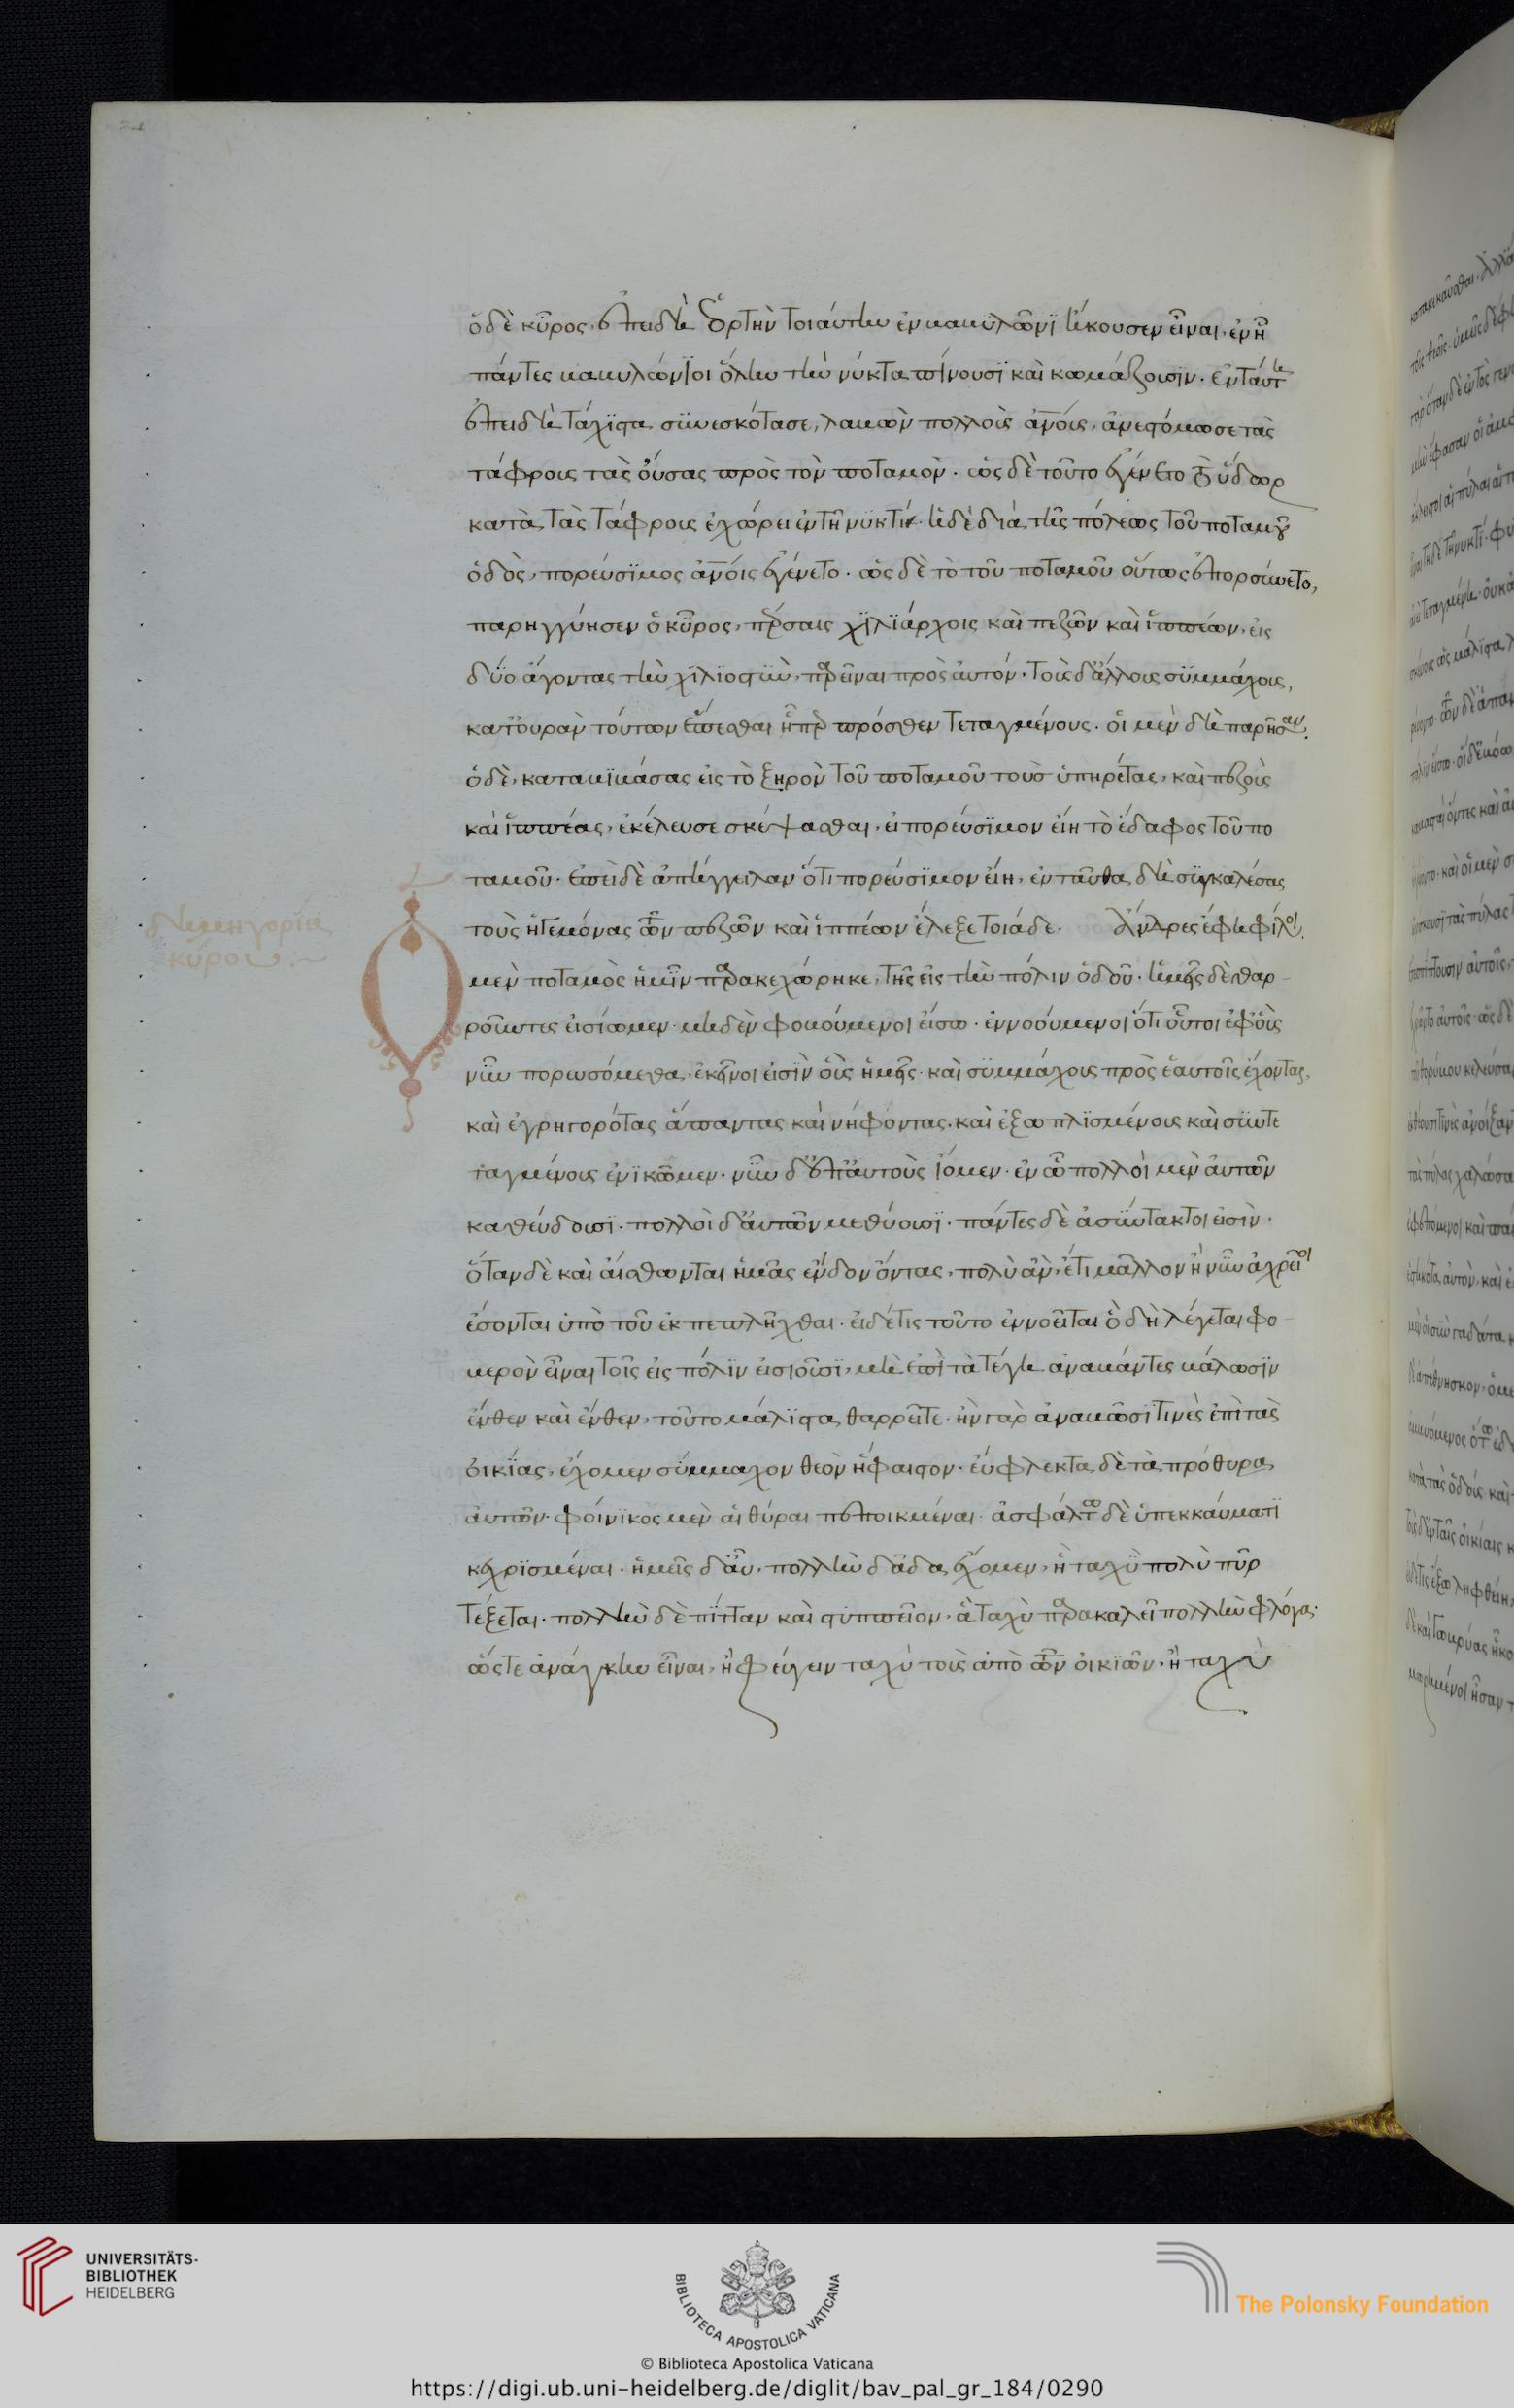 ὁ δὲ κῦρος, ἐπειδὴ ἑορτὴν τοιαύτην ἐν βαβυλῶνϊ ἤκουσεν εἶναι, ἐν ᾗ
πάντες βαβυλώνϊοι ὅλην τὴν νύκτα πίνουσϊ καὶ κωμάζουσϊν· ἐν ταύτη
ἐπειδὴ τάχϊστα συνεσκότασε, λαβὼν πολλοὺς ἀνους, ἀνεστόμωσε τὰς
τάφρους τὰς οὔσας πρὸς τὸν ποταμὸν· ὡς δὲ τοῦτο ἐγένετο τὸ ὕδωρ
κατὰ τὰς τάφρους ἐχώρει ἐν τῆ νϋκτί· ἡ δὲ διὰ τῆς πόλεως τοῦ ποταμοῦ
ὁδὸς, πορεύσϊμος ἀνοις ἐγένετο· ὡς δὲ τὸ τοῦ ποταμοῦ οὕτως ἐπορσύνετο,
παρηγγύησεν ὁ κῦρος, πέρσαις χϊλϊάρχοις καὶ πεζῶν καὶ ἱππέων, εἰς
δύο ἄγοντας τὴν χϊλϊοστὺν, παρεῖναι πρὸς αὐτόν· τοὺς δ' ἄλλους συμμάχους,
κατ' οὐρὰν τούτων ἕπεσθαι ᾗπερ πρόσθεν τεταγμένους· οἱ μὲν δὴ παρῆσαν·
ὁ δὲ, καταβϊβάσας εἰς τὸ ξηρὸν τοῦ ποταμοῦ τοὺσ ὑπηρέτας, καὶ πεζοὺς
καὶ ἱππέας, ἐκέλευσε σκέψασθαι, εἰ πορεύσϊμον εἴη τὸ ἔδαφος τοῦ πο
ταμοῦ· ἐπεὶ δὲ ἀπήγγειλαν ὅτι πορεύσϊμον εἴη, ἐνταῦθα δὴ συγκαλέσας
τοὺς ἡγεμόνας τῶν πεζῶν καὶ ἱππέων ἔλεξε τοιάδε· Ἄνδρες ἔφη φίλοι·
δημηγορία
κύρου :~
Ὁ μὲν ποταμὸς ἡμῖν παρακεχώρηκε, τῆς εἰς τὴν πόλιν ὁδοῦ· ἡμεῖς δὲ θαρ-
ροῦντες εἰσίωμεν μηδὲν φοβούμενοι εἴσω· ἐννοούμενοι ὅτι οὗτοι ἐφ' οὓς
νῦν πορευσόμεθα, ἐκεῖνοι εἰσὶν οὓς ἡμεῖς καὶ συμμάχους πρὸς ἑαυτοῖς ἔχοντας,
καὶ ἐγρηγορότας ἅπαντας καὶ νήφοντας, καὶ ἐξωπλϊσμένους καὶ συντε
ταγμένους ἐνϊκῶμεν· νῦν δ' ἐπ' αὐτοὺς ἴομεν· ἐν ᾧ πολλοὶ μὲν αὐτῶν
καθεύδουσϊ· πολλοὶ δ' αὐτῶν μεθύουσϊ· πάντες δὲ ἀσύντακτοι εἰσὶν·
ὅταν δὲ καὶ αἴσθωνται ἡμᾶς ἔνδον ὄντας, πολὺ ἂν, ἔτι μᾶλλον ἢ νῦν ἀχρεῖοι
ἔσονται ὑπὸ τοῦ ἐκπεπλῆχθαι· εἰ δέ τις τοῦτο ἐννοεῖται ὃ δὴ λέγεται φο-
βερὸν εἶναι τοῖς εἰς πόλϊν εἰσιοῦσϊ, μὴ ἐπὶ τὰ τέγη ἀναβάντες βάλωσϊν
ἔνθεν καὶ ἔνθεν, τοῦτο μάλϊστα θαρρεῖτε· ἢν γὰρ ἀναβῶσϊ τινὲς ἐπὶ τὰς
οἰκϊάς, ἔχομεν σύμμαχον θεὸν ἥφαιστον· εὔφλεκτα δὲ τὰ πρόθυρα
αὐτῶν· φοίνϊκος μὲν αἱ θύραι πεποιημέναι· ἀσφάλτω δὲ ὑπεκκαύματϊ
κεχρϊσμέναι· ἡμεῖς δ' αὖ, πολλὴν δᾷδα ἔχομεν, ἣ ταχὺ πολὺ πῦρ
τέξεται· πολλὴν δὲ πίτταν καὶ στυππεῖον· ἃ ταχὺ παρακαλεῖ πολλὴν φλόγα·
ὥςτε ἀνάγκην εἶναι, ἢ φεύγειν ταχὺ τοὺς ἀπὸ τῶν οἰκϊῶν, ἢ ταχὺ
UNIVERSITÄTS-
BIBLIOTHEK
HEIDELBERG
BIBLIOTECA APOSTOLICA VATICANA
The Polonsky Foundation
© Biblioteca Apostolica Vaticana
https://digi.ub.uni-heidelberg.de/diglit/bav_pal_gr_184/0290